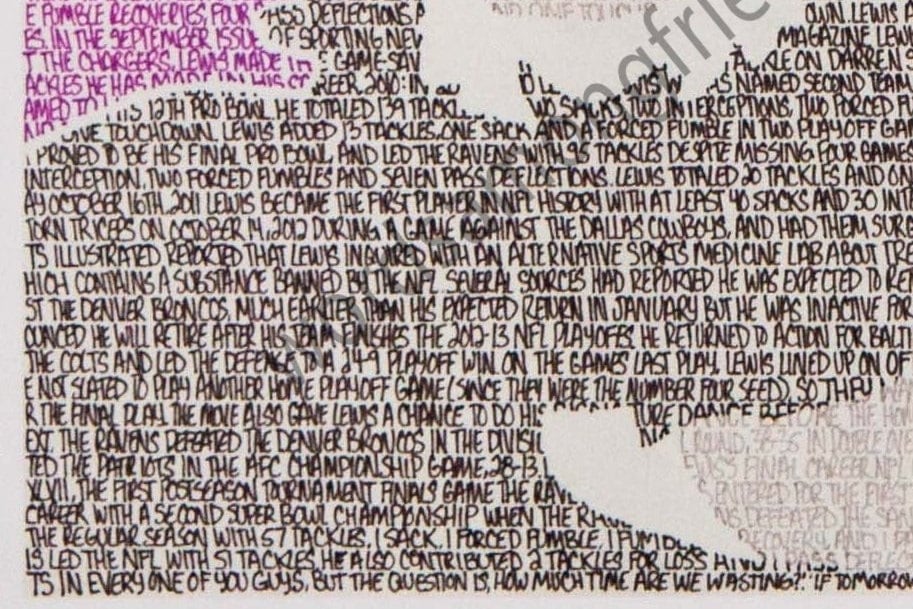 E FUMBLE RECOVERIES, FOUR PASS DEFLECTIONS A AND ONE TOUCH OWN. LEWIS A
ES. IN THE SEPTEMBER ISSUE OF SPORTING NEW MAGAZINE LEWI
T THE CHARGERS, LEWIS MADE IN E GAME-SAV ACKLE ON DARREN S
ACKLES HE HAS MADE IN HIS CAREER. 2010: IN AS NAMED SECOND TEAM
AMED TO HIS 12TH PRO BOWL. HE TOTALED 139 TACKL TWO SACKS, TWO INTERCEPTIONS, TWO FORCED FU
ND ONE TOUCHDOWN. LEWIS ADDED 13 TACKLES, ONE SACK AND A FORCED FUMBLE IN TWO PLAYOFF GA
PROVED TO BE HIS FINAL PRO BOWL, AND LED THE RAVENS WITH 95 TACKLES DESPITE MISSING FOUR GAMES
INTERCEPTION, TWO FORCED FUMBLES AND SEVEN PASS DEFLECTIONS. LEWIS TOTALED 20 TACKLES AND ON
AY OCTOBER 16TH, 2011 LEWIS BECAME THE FIRST PLAYER IN NFL HISTORY WITH AT LEAST 40 SACKS AND 30 INT
TORN TRICEPS ON OCTOBER 14, 2012 DURING A GAME AGAINST THE DALLAS COWBOYS, AND HAD THEM SURG
TS ILLUSTRATED REPORTED THAT LEWIS INQUIRED WITH AN ALTERNATIVE SPORTS MEDICINE LAB ABOUT TRE
HICH CONTAINS A SUBSTANCE BANNED BY THE NFL. SEVERAL SOURCES HAD REPORTED HE WAS EXPECTED TO RET
ST THE DENVER BRONCOS, MUCH EARLIER THAN HIS EXPECTED RETURN IN JANUARY BUT HE WAS INACTIVE FOR
OUNCED HE WILL RETIRE AFTER HIS TEAM FINISHES THE 2012-13 NFL PLAYOFFS. HE RETURNED TO ACTION FOR BALTI
THE COLTS AND LED THE DEFENSE IN A 24-9 PLAYOFF WIN. ON THE GAMES LAST PLAY, LEWIS LINED UP ON OF
E NOT SLATED TO PLAY ANOTHER HOME PLAYOFF GAME (SINCE THEY WERE THE NUMBER FOUR SEED), SO THEY WA
R THE FINAL PLAY. THE MOVE ALSO GAVE LEWIS A CHANCE TO DO HIS TURE DANCE BEFORE THE HOM
EXT, THE RAVENS DEFEATED THE DENVER BRONCOS IN THE DIVISI ROUND, 38-35 IN DOUBLE OVE
TED THE PATRIOTS IN THE AFC CHAMPIONSHIP GAME, 28-13, L EWIS'S FINAL CAREER NFL
XLVII, THE FIRST POSTSEASON TOURNAMENT FINALS GAME THE RAV S ENTERED FOR THE FIRST
CAREER WITH A SECOND SUPER BOWL CHAMPIONSHIP WHEN THE RAVENS DEFEATED THE SAN
THE REGULAR SEASON WITH 57 TACKLES, 1 SACK, 1 FORCED FUMBLE, 1 FUMBLE RECOVERY, AND 1 P
IS LED THE NFL WITH 51 TACKLES. HE ALSO CONTRIBUTED 2 TACKLES FOR LOSS AND 1 PASS DEFLEC
TS IN EVERY ONE OF YOU GUYS, BUT THE QUESTION IS, HOW MUCH TIME ARE WE WASTING?" "IF TOMORROW